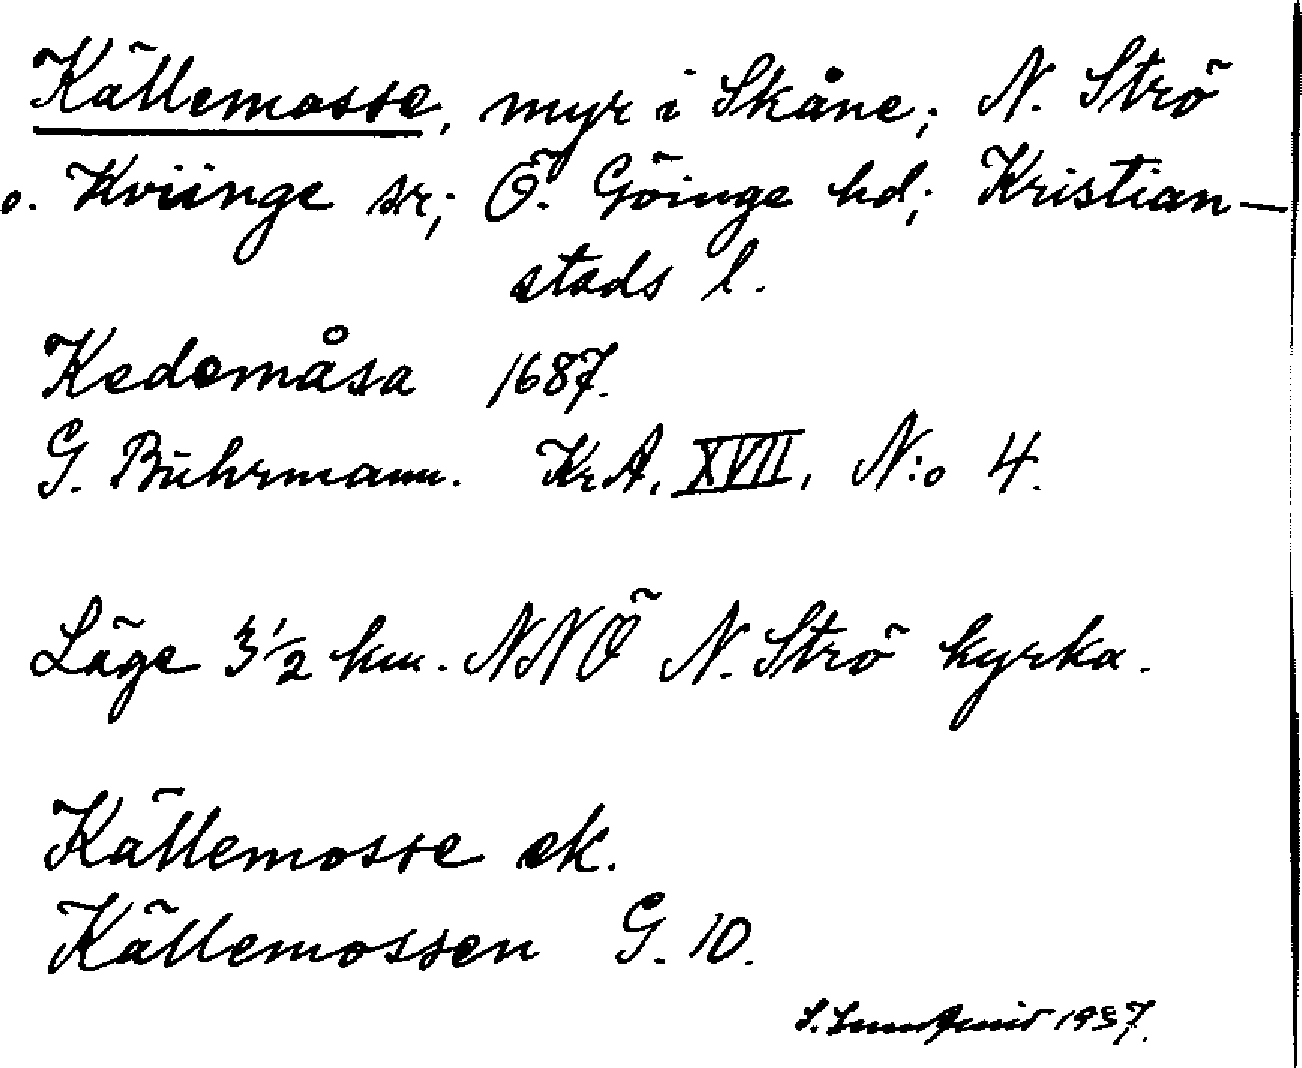 Källemosse, myr i Skåne; N. Strö
o. Kviinge sr; Ö. Göinge hd; Kristian-
stads l.
Kedemåsa 1687.
G. Buhrmann. Kr.A. XVII, N:o 4.
Läge 3 1/2 km. NNÖ N. Strö kyrka.
Källemosse ek.
Källemossen G. 10.
S. 1937.